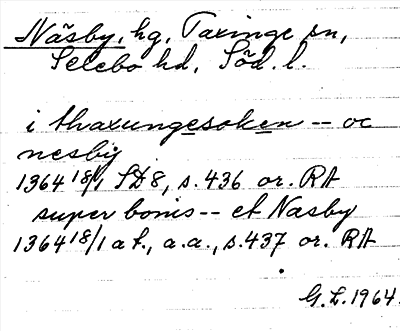 Näsby, hg. Taxinge sn,
Selebo hd. Söd. l.
i thaxungesoken -- oc
nesby
1364 18/1 SD8, s. 436 or. RA
super bonis -- et Nasby
1364 18/1 a t., a.a., s. 437 or. RA
G.L. 1964.